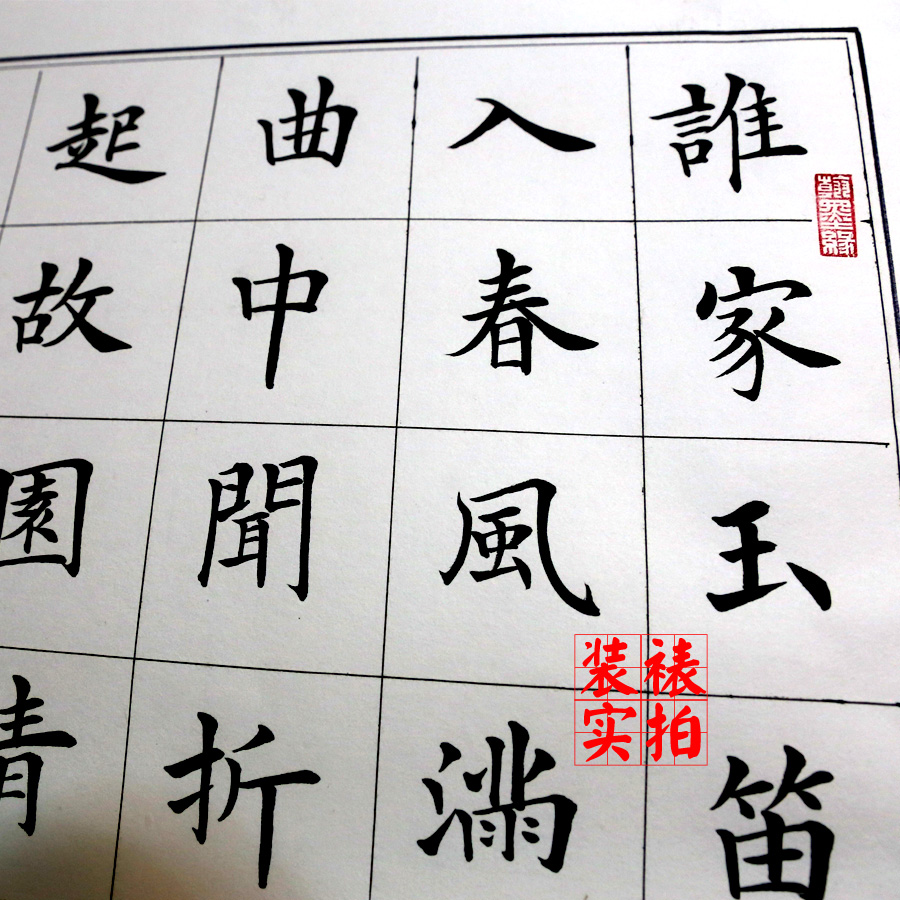 誰家玉笛
入春風滿
曲中聞折
起故園情
翰墨緣
装裱
实拍